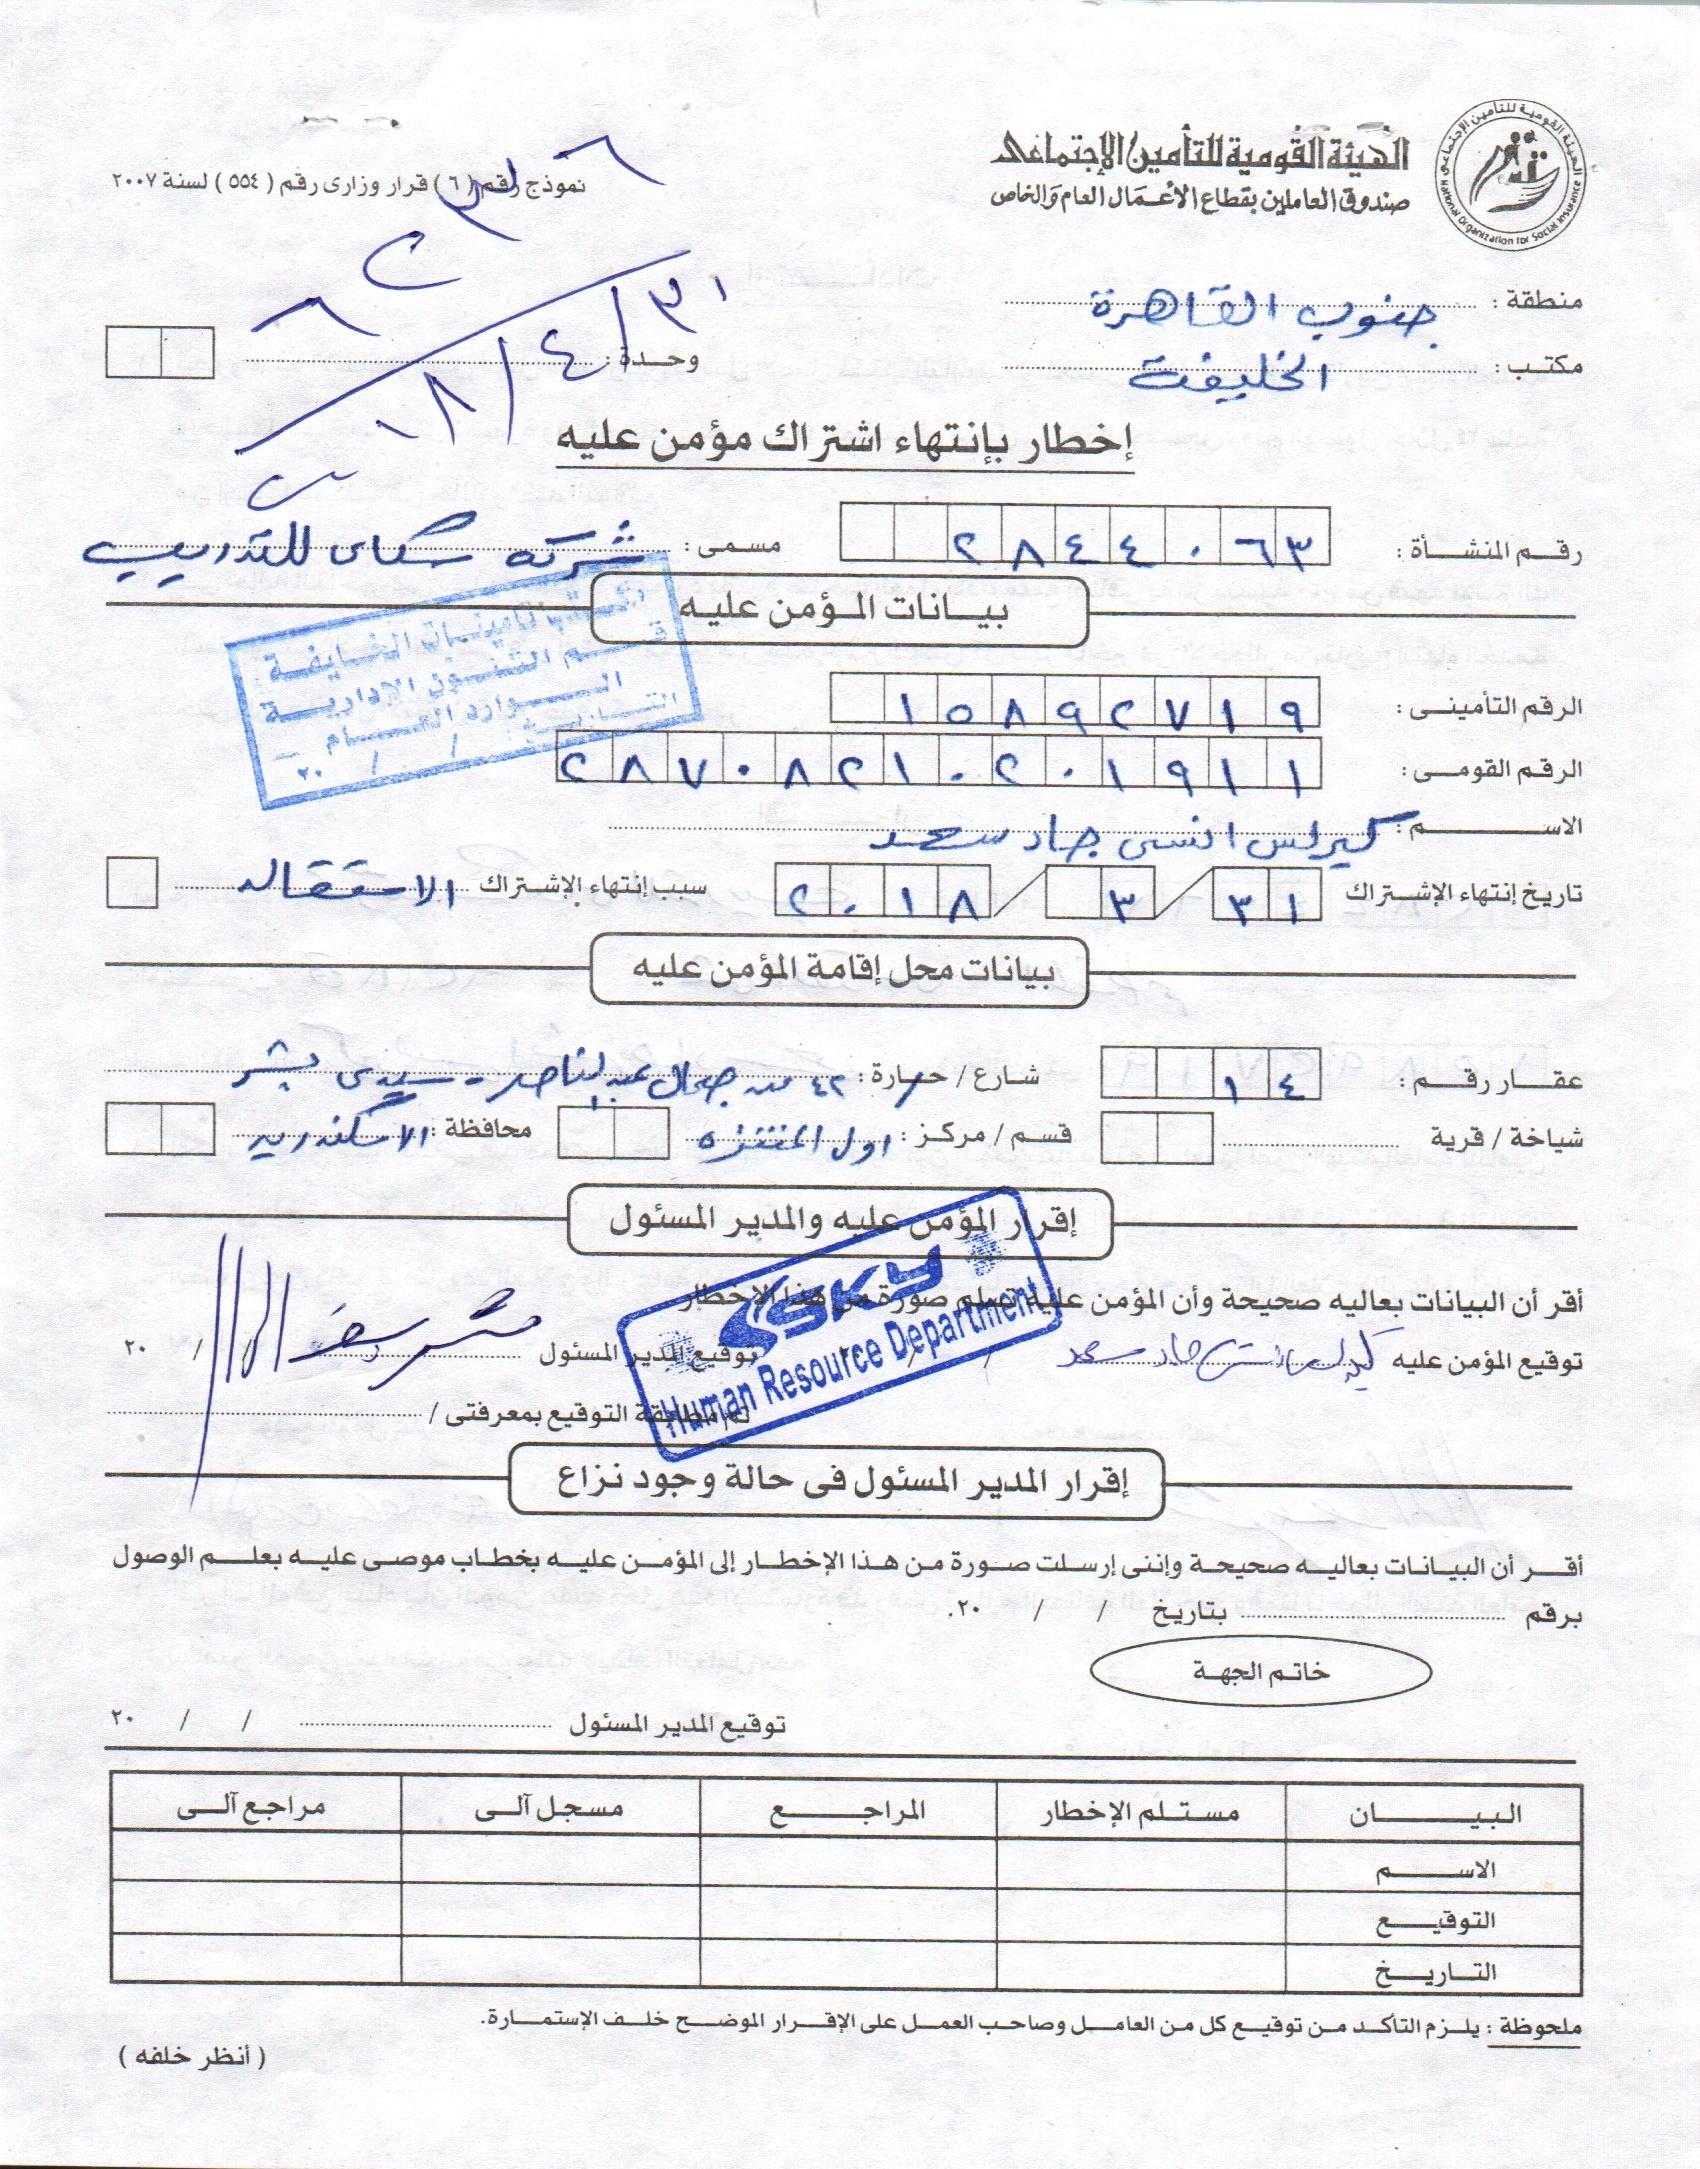 الهيئة القومية للتأمين الإجتماعى
صندوق العاملين بقطاع الأعمال العام والخاص
الهيئة القومية للتأمين الإجتماعى
National Organization for Social Insurance
نموذج رقم ( ٦ ) قرار وزارى رقم ( ٥٥٤ ) لسنة ٢٠٠٧
منطقة : جنوب القاهرة
مكتب : الخليفة
وحدة :
إخطار بإنتهاء اشتراك مؤمن عليه
رقم المنشأة : ٢٨٤٤٠٦٣ مسمى : شركة سكاى للتدريب
بيانات المؤمن عليه
الرقم التأمينى : ١٥٨٩٢٧١٩
الرقم القومى : ٢٨٧٠٨٢١٠٢٠١٩١١
الاسم : كيرلس انسى جاد سعد
تاريخ إنتهاء الإشتراك ٣١ / ٣ / ٢٠١٨ سبب إنتهاء الإشتراك الاستقالة
بيانات محل إقامة المؤمن عليه
عقار رقم : ١٤ شارع / حارة : ٤٢ من جمال عبد الناصر - سيدى بشر
شياخة / قرية قسم / مركز : اول المنتزه محافظة : الاسكندرية
إقرار المؤمن عليه والمدير المسئول
أقر أن البيانات بعاليه صحيحة وأن المؤمن عليه تسلم صورة من هذا الإخطار
توقيع المؤمن عليه كيرلس انسى جاد سعد / / توقيع المدير المسئول / / ٢٠
تم مطابقة التوقيع بمعرفتى /
SKY
Human Resource Department
إقرار المدير المسئول فى حالة وجود نزاع
أقر أن البيانات بعاليه صحيحة وإننى إرسلت صورة من هذا الإخطار إلى المؤمن عليه بخطاب موصى عليه بعلم الوصول
برقم بتاريخ / / ٢٠.
خاتم الجهة
توقيع المدير المسئول / / ٢٠
البيان مستلم الإخطار المراجع مسجل آلى مراجع آلى
الاسم
التوقيع
التاريخ
ملحوظة : يلزم التأكد من توقيع كل من العامل وصاحب العمل على الإقرار الموضح خلف الإستمارة.
( أنظر خلفه )